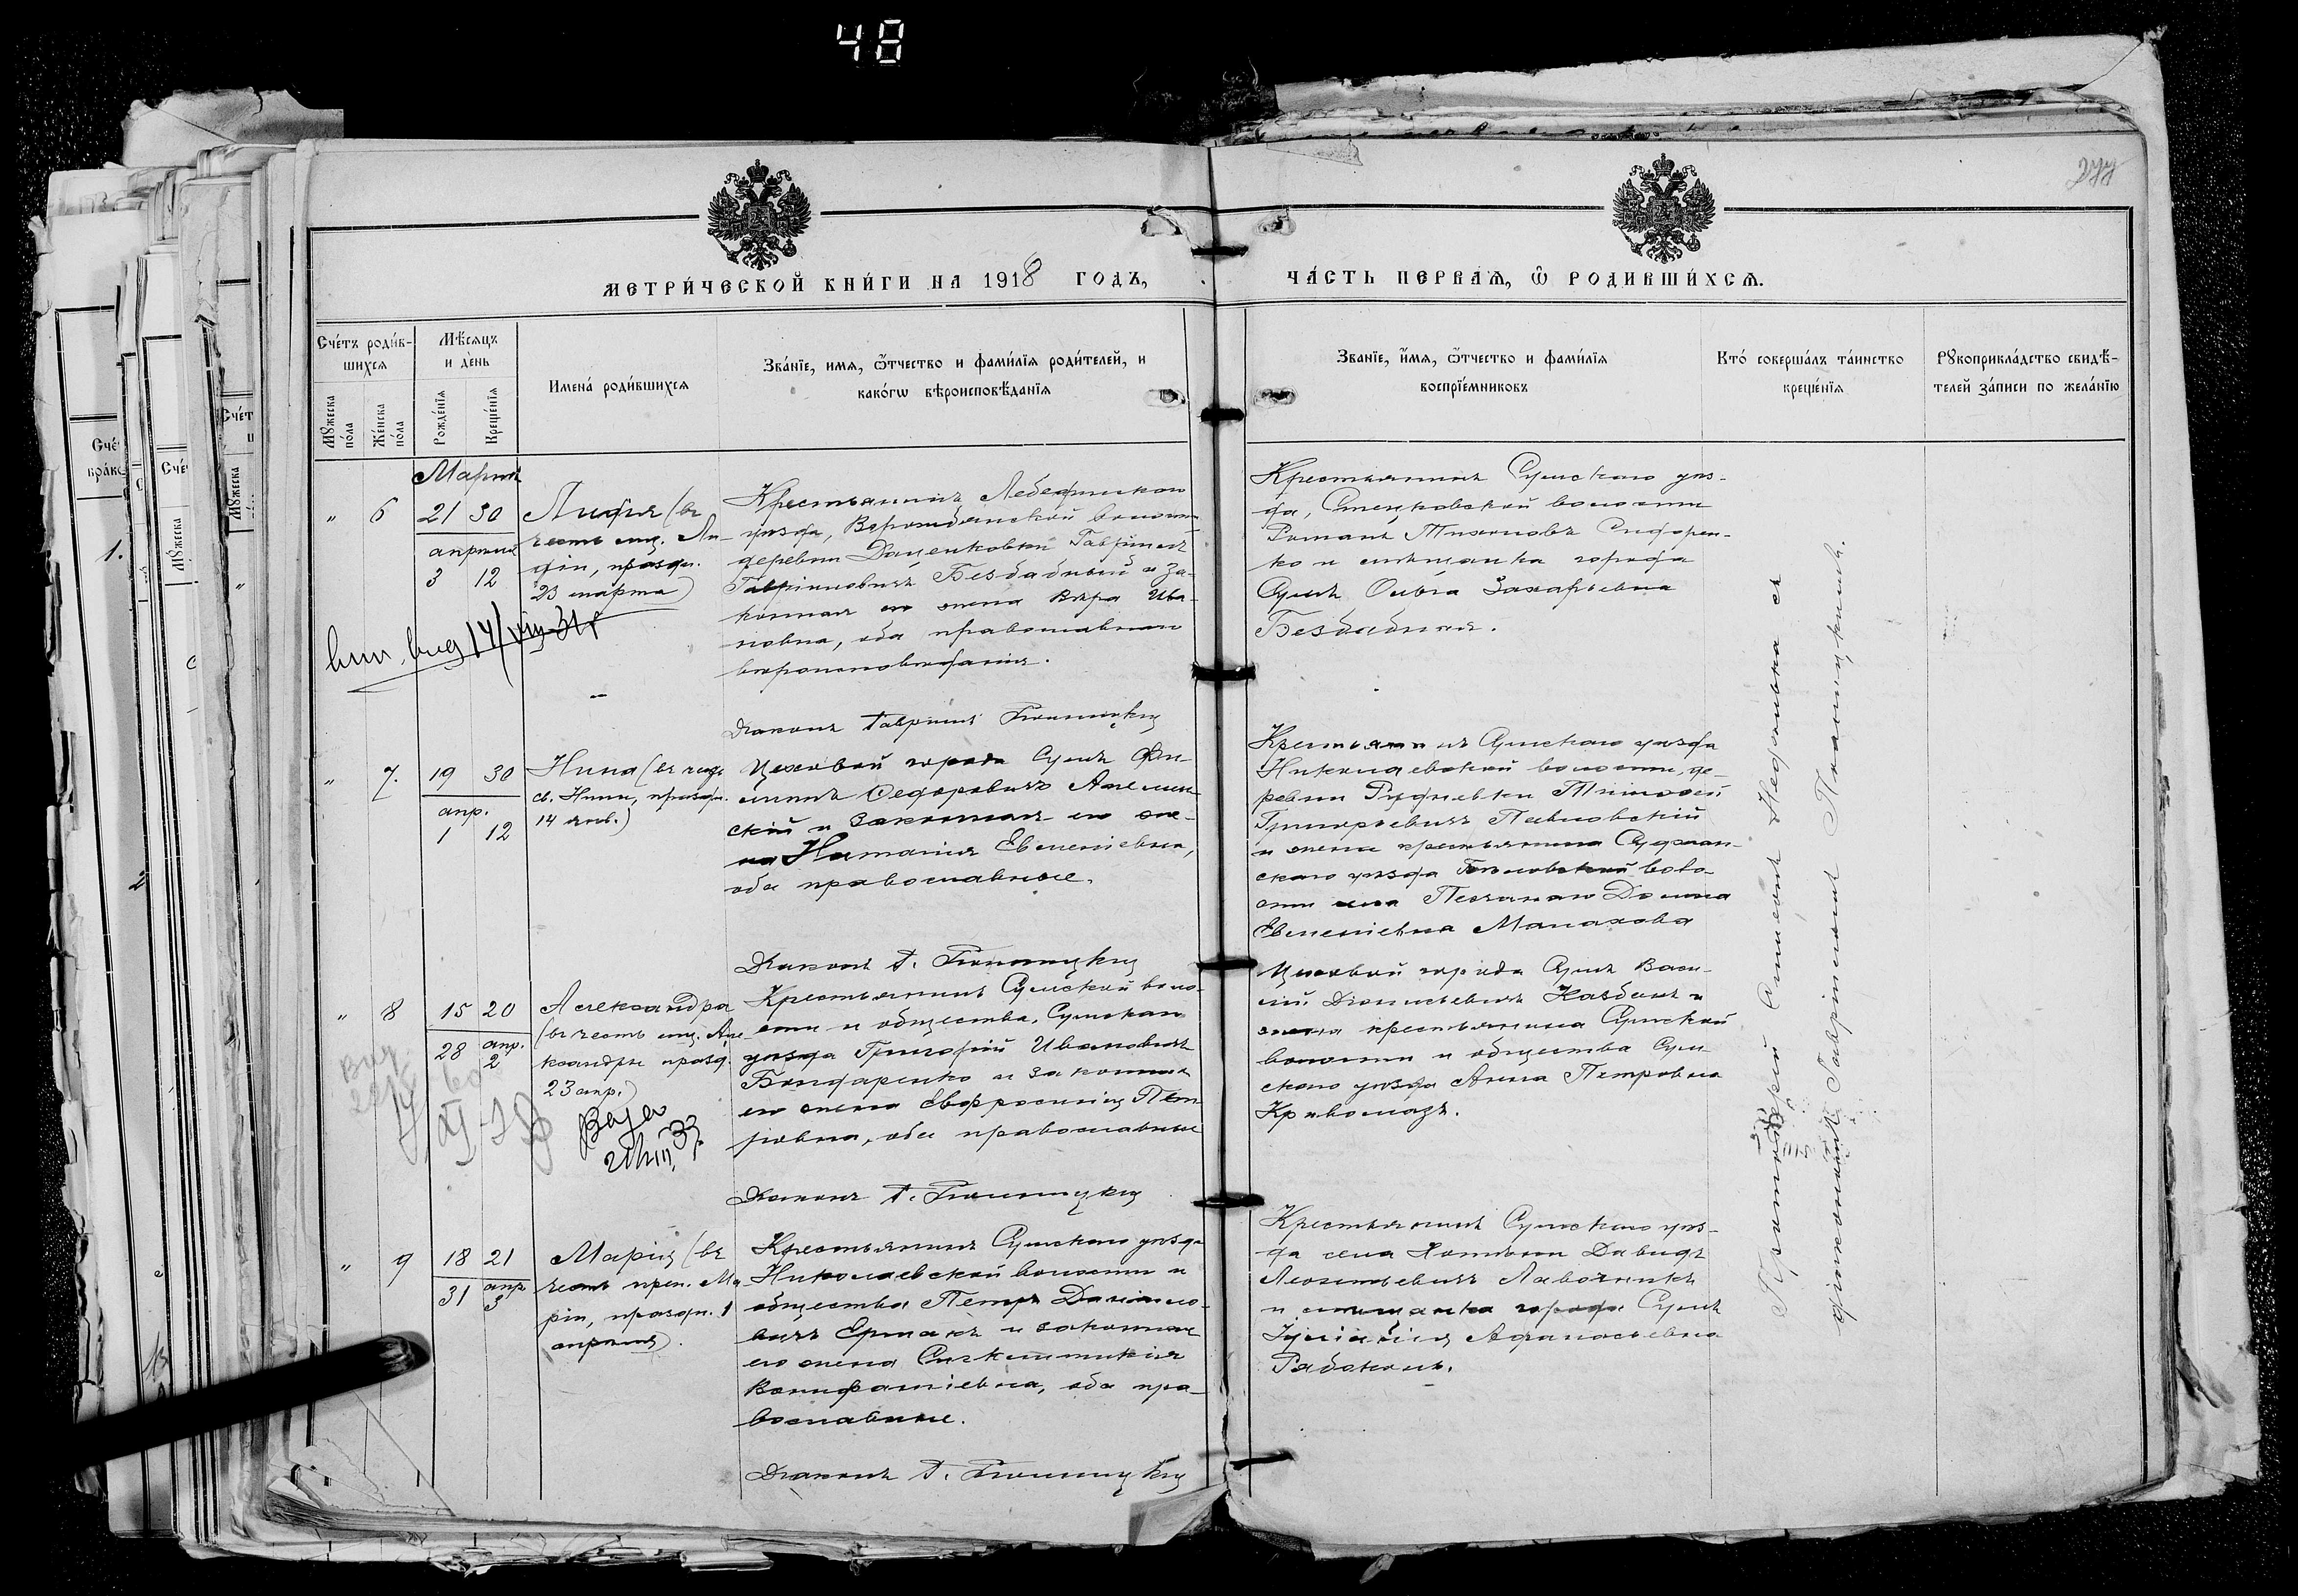 48
277
МЕТРИ́ЧЕСКОЙ КНИ́ГИ НА 1918 ГОДЪ,
ЧА́СТЬ ПЕРВАѦ, Ѿ РОДИВШИ́ХСѦ.
Сче́тъ роди́в-
шихсѧ
Мꙋжеска по́ла
Же́нска по́ла
Мѣ́сяцъ
и де́нь
Рожде́нїѧ
Креще́нїѧ
Имена́ роди́вшихсѧ
Зва́нїе, имѧ, ѿтчество и фами́лїѧ роди́телей, и
како́гѡ вѣроисповѣ́данїѧ
Званїе, и́мѧ, ѿтчество и фами́лїѧ
воспрїе́мниковъ
Кто́ соверша́лъ та́инство
креще́нїѧ
Рꙋкоприкла́дство свидѣ́-
телей за́писи по жела́нїю
Мартъ
" 6
21 30
апрѣля
3 12
Лидія (въ
честь мц. Ли-
діи, праздн.
23 марта)
Крестьянинъ Лебединскаго
уѣзда, Ворожбянской волости
деревни Даценковки Гавріилъ
Гавріиловичъ Безбабный и за-
конная его жена Вѣра Ива-
новна, оба православнаго
вѣроисповѣданія.
Діаконъ Гавріилъ
Крестьянинъ Сумскаго уѣз-
да, Стецковской волости
Романъ Тихоновъ Сидорен-
ко и мѣщанка города
Сумъ Ольга Захарьевна
Безбабная.
" 7.
19 30
апр.
1 12
Нина (въ честь
св. Нины, праздн.
14 янв.)
Цеховой города Сумъ Фи-
липпъ Федоровичъ
скій и законная его же-
на Наталія Евгеніевна,
оба православные.
Діаконъ Г.
Крестьянинъ Сумскаго уѣзда
Николаевской волости, де-
ревни Рудневки Тимофей
Григорьевичъ Павловскій
и жена крестьянина Суджан-
скаго уѣзда волос-
ти села Песчанаго Домна
Евгеніевна Малахова
" 8
15 20
28 апр.
2
Александра
(въ честь мц. Але-
ксандры празд.
23 апр.)
Крестьянинъ Сумской воло-
сти и общества, Сумскаго
уѣзда Григорій Ивановичъ
Бондаренко и законная
его жена Евфросинія Пет-
ровна, оба православные
Діаконъ Г.
Цеховой города Сумъ Васи-
лій Діонисьевичъ Казбанъ и
жена крестьянина Сумской
волости и общества Сум-
скаго уѣзда Анна Петровна
Кривомазъ.
" 9
18 21
31 апр.
3
Марія (въ
честь преп. Ма-
ріи, праздн. 1
апрѣля).
Крестьянинъ Сумскаго уѣзда
Николаевской волости и
общества Петръ Данiило-
вичъ Ермакъ и законная
его жена Синклитикія
Вонифатіевна, оба пра-
вославные.
Діаконъ Г.
Крестьянинъ Сумскаго уѣз-
да села Хотѣни Давидъ
Леонтьевичъ Лавочникъ
и мѣщанка города Сумъ
Іуліанія Афанасьевна
Рябоконь.
Протоіерей съ
діакономъ Гавріиломъ